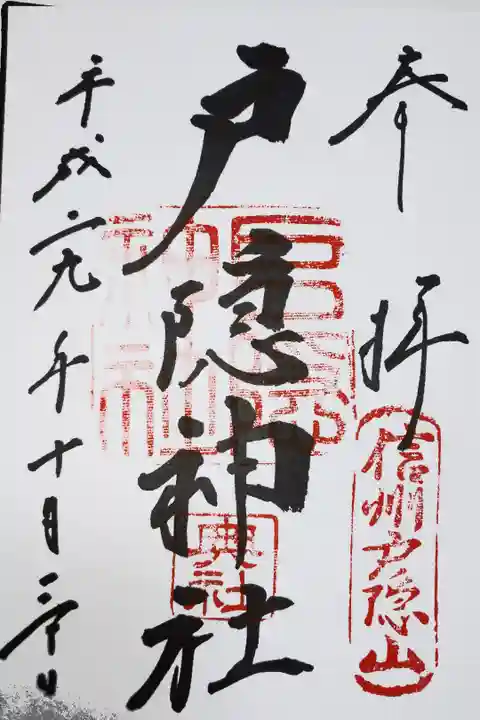 奉拝
信州戸隠山
戸隠神社
奥社
平成二九年十月三十日